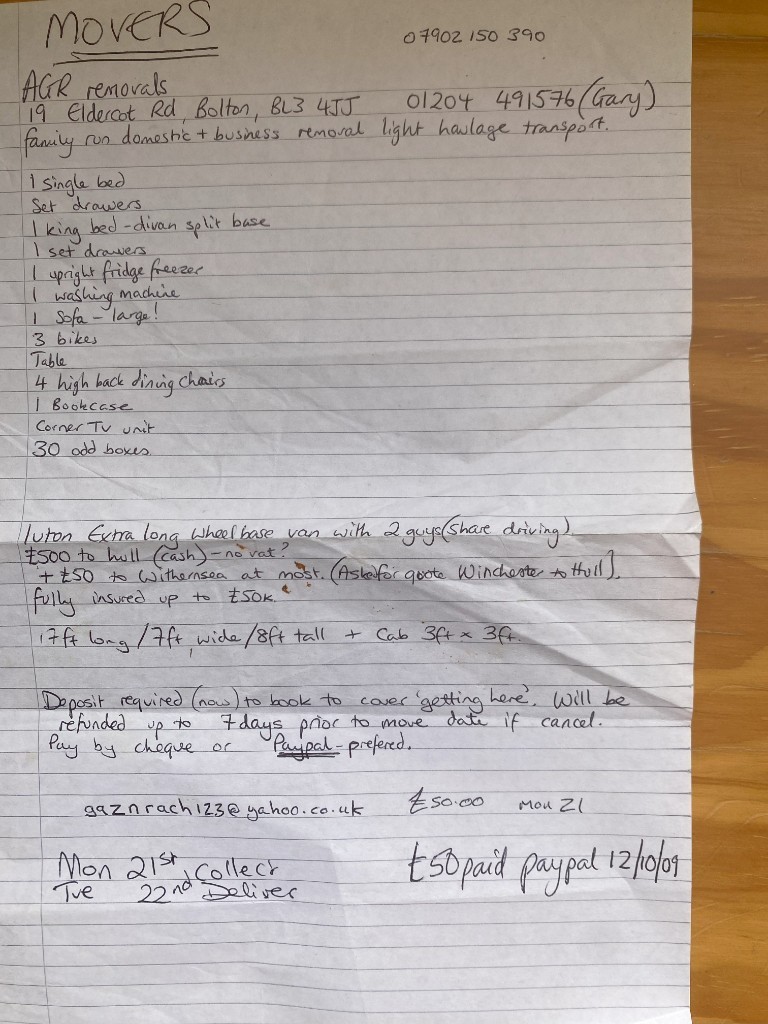 MOVERS
07902 150 390
AGR removals
19 Eldercot Rd, Bolton, BL3 4JJ 01204 491576 (Gary)
family run domestic + business removal light haulage transport.
1 single bed
Set drawers
1 king bed - divan split base
1 set drawers
1 upright fridge freezer
1 washing machine
1 Sofa - large!
3 bikes
Table
4 high back dining chairs
1 Bookcase
Corner TV unit
30 odd boxes
luton Extra long wheelbase van with 2 guys (share driving)
£500 to hull (cash) - no vat?
+ £50 to Withernsea at most. (Asked for quote Winchester to Hull).
fully insured up to £50k.
17ft long / 7ft wide / 8ft tall + Cab 3ft x 3ft.
Deposit required (now) to book to cover 'getting here'. Will be
refunded up to 7 days prior to move date if cancel.
Pay by cheque or Paypal - prefered.
gaznrach123@yahoo.co.uk £50.00 Mon 21
Mon 21st, Collect £50 paid paypal 12/10/09
Tue 22nd Deliver